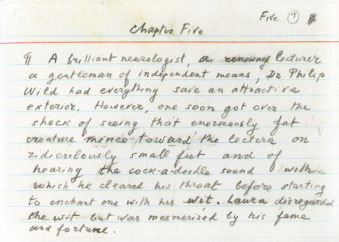 Five ①
Chapter Five
¶ A brilliant neurologist, a renowned lecturer
a gentleman of independent means, Dr Philip
Wild had everything save an attractive
exterior. However, one soon got over the
shock of seeing that enormously fat
creature mince toward the lectern on
ridiculously small feet and of
hearing the cock-a-doodle sound with
which he cleared his throat before starting
to enchant one with his wit. Laura disregarded
the wit but was mesmerized by his fame
and fortune.